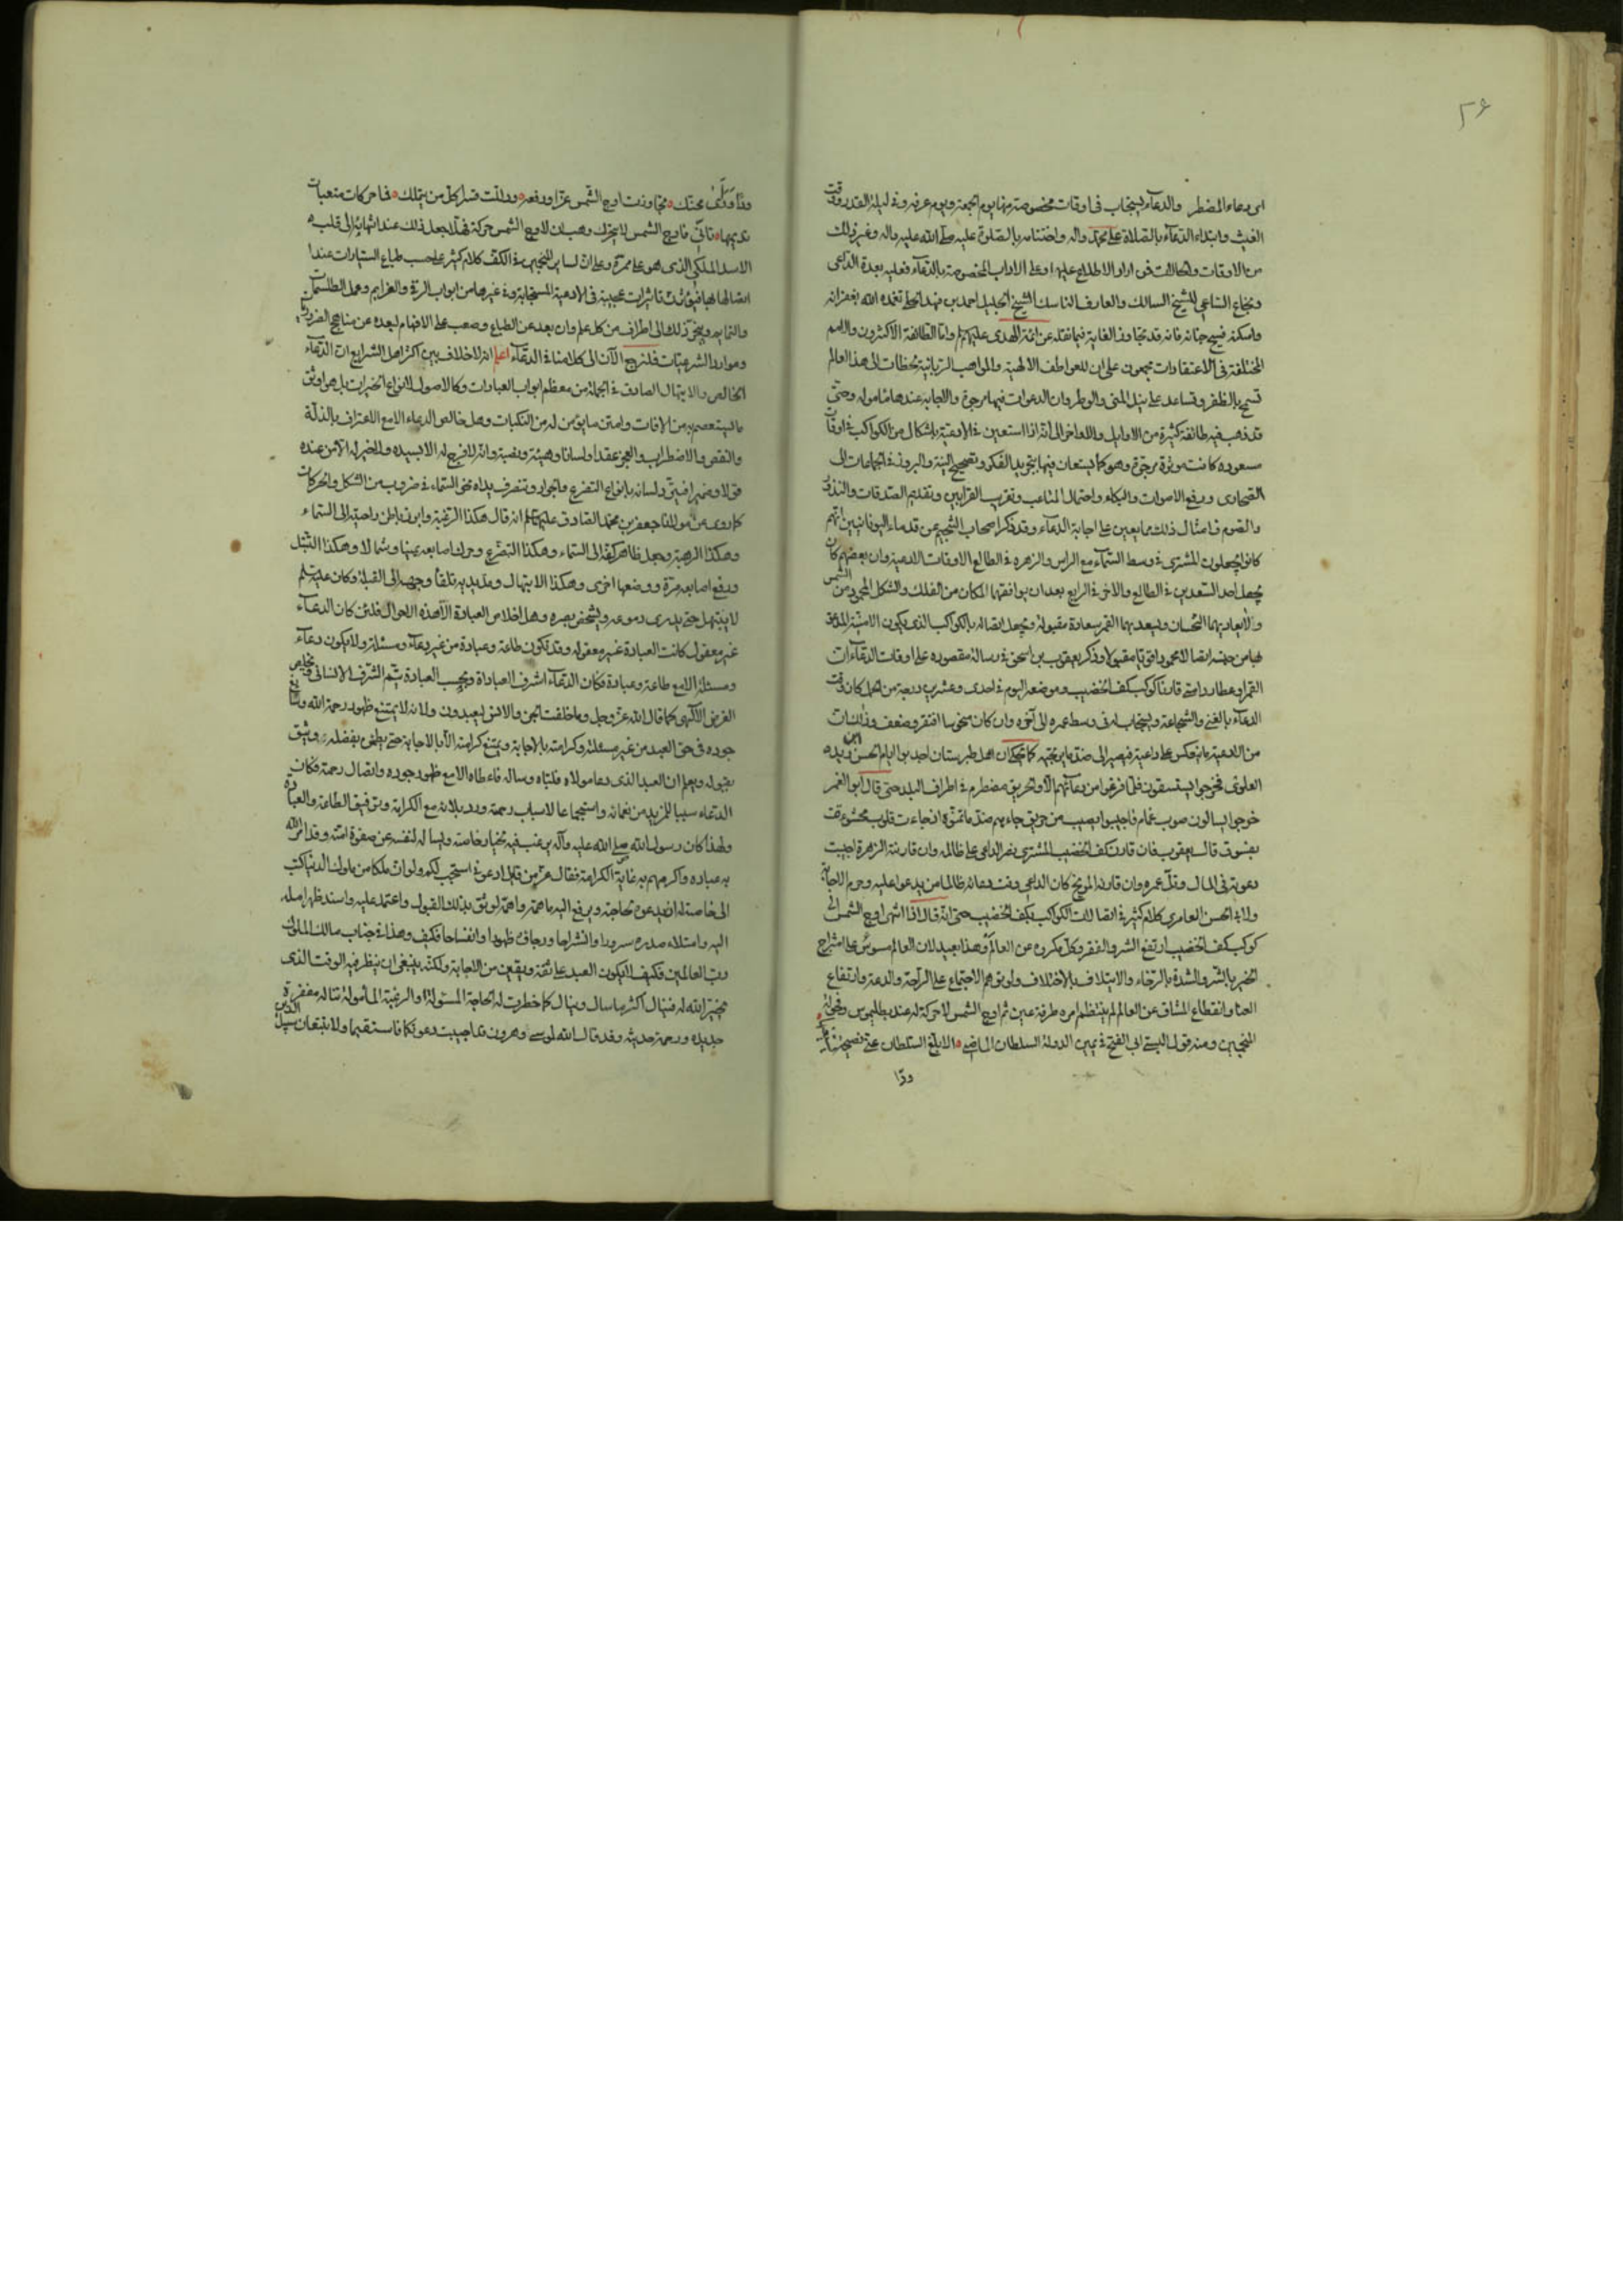 ٢٦
اى دعاء المضطر والدعاء يستجاب فى اوقات مخصوصة منها يوم الجمعة ويوم عرفه وفى ليلة القدر ووقت
الغيث وابتداء الدعاء بالصلاة على محمد واله واختتامه بالصلوة عليه صلى الله عليه واله وغير ذلك
من الاوقات والحالات فمن اراد الاطلاع عليها وعلى الاداب المخصوصة بالدعاء فعليه بعدة الداعى
ونجاح الساعى للشيخ السالك والعارف الناسك الشيخ الجليل احمد بن فهد الحلى تغمده الله بغفرانه
واسكنه فسيح جنانه فانه قد تجاوز الغاية فيما نقله عن ائمة الهدى عليهم واما الطائفة الاكثرون والامم
المختلفة فى الاعتقادات مجمعون على ان للعواطف الالهية والمواهب الربانية لحظات الى هذا العالم
تسمح بالظفر وتساعد على نيل المنى والوطر وان الدعوات فيها مرجوة والاجابة عندها مامولة وحتى
قد ذهب فيه طائفة كثيرة من الاوايل والاواخر الى انه اذا استعين فى الادعية باشكال من الكواكب فى اوقات
مسعوده كانت موثرة مرجوة وهو كما يستعان فيها بتجريد الفكر وتصحيح النية والبروز فى الجماعات الى
الصحارى ورفع الاصوات والبكاء واحتمال المتاعب وتقريب القرابين وتقديم الصدقات والنذور
والصوم فامثال ذلك مما يعين على اجابة الدعاء وقد ذكر اصحاب التنجيم عن قدماء اليونانيين انهم
كانوا يجعلون المشترى فى وسط السماء مع الراس والزهره فى الطالع الاوقات الادعية وان بعضهم كان
يجعل احد السعدين فى الطالع والاخر فى الرابع بعد ان يوافقهما المكان من الفلك والشكل المحمود من الشمس
والابعاد بهما النحسان ويسعد بهما القمر سعادة مقبولة ويجعل اتصاله بالكواكب الذى يكون الامنية المدعو
لها من جهته اتصالا محمودا قويا مقبولا وذكر يعقوب بن اسحق فى رسالة مقصوره على اوقات الدعاءات
القمر او عطارد متى قارنا كوكب كف الخضيب وموضعه اليوم فى احدى وعشرين درجة من الحمل كان وقت
الدعاء بالغنى والشجاعة ويستجاب له فى وسط عمره الى آخره وان كان منحوسا افتقر وضعف
من الادعية ما ينعكس على داعيه فيصير الى ضد ما يرتجيه كما يحكى ان اهل طبرستان اجدبوا ايام الحسن ابن زيد
العلوى فخرجوا يستسقون فما فرغوا من دعائهم الا والحريق مضطرم فى اطراف البلد حتى قال ابو الغمر
خرجوا يسالون صوب غمام فاجيبوا بصيب من حريق جاءهم ضد ما تمنوه اذ جاءت قلوب محشوة
بفسوق قال يعقوب فان قارن كف الخضيب المشترى نصر الداعى على ظالمه وان قارنه الزهرة اجيبت
دعوته فى المال وقل عمره وان قارنه المريخ كان الداعى وقت دعائه ظالما من يدعو عليه وحرم الاجابة
ولابى الحسن العامرى كلام كثير فى اتصالات الكواكب بكف الخضيب حتى انه قال اذا انتهى اوج الشمس الى
كوكب كف الخضيب ارتفع الشر والفقر وكل مكروه عن العالم وهذا بعيد لان العالم مسوس على امتزاج
الخير بالشر والشدة بالرخاء والايتلاف بالاختلاف ولو توهم الاجتماع على الراحة والدعة وارتفاع
العنا وانقطاع المشاق عن العالم لم ينتظم امره طرفة عين ثم اوج الشمس لا حركة له عند بطليموس
المنجمين ومنه قول البستى ابى الفتح فى يمين الدولة السلطان الماضى الا ابلغ السلطان عنى نصيحة
محبتك تجاوزت اوج الشمس عزا ورفعة وذللت قسرا كل من يتملك فما حركات متعبات
تديمها تانّ فاوج الشمس لا يتحرك وهب ان لاوج الشمس حركة فهلا جعل ذلك عند انتهائه الى قلب
الاسد الملكى الذى هو على ممرة وعلى ان لساير المنجمين فى الكف كلام كثير على حسب طباع السيارات عند
اتصالها بها تاثيرات عجيبة فى الادعية المستجابة وفى غيرها من ابواب الرقى والعزايم وعمل الطلسمات
ذلك الى اطراف من كل علم وان بعد عن الطباع وصعب على الافهام لبعده عن مناهج
وموارد الشرعيات فلنرجع الآن الى كلامنا فى الدعاء اعلم انه لا خلاف بين اكثر اهل الشرايع ان الدعاء
الخالص والابتهال الصادق فى الجملة من معظم ابواب العبادات وكالاصول لانواع الخيرات بل هو اوثق
ما يستعصم به من الافات وامتن ما يؤمن له من النكبات وهل خالص الدعاء الا مع الاعتراف بالذلة
والنقص والاضطراب والعجز عقدا ولسانا وهيئة ونصبة وانه لا فرج له الا بسيده ولا خير له الا من عنده
قولا وضميرا ولسانه بانواع التضرع وتنصرف يداه نحو السماء فى ضروب من الشكل والحركات
كما روى عن مولانا جعفر بن محمد الصادق عليهما السلم انه قال هكذا الرغبة وابرز باطن راحتيه الى السماء
وهكذا الرهبة وجعل ظاهر كفه الى السماء وهكذا التضرع وحرك اصابعه يمينا وشمالا وهكذا التبتل
ورفع اصابعه مرة ووضعها اخرى وهكذا الابتهال ومد يديه تلقاء وجهه الى القبلة وكان عليه سلم
لا يبتهل حتى يذرى دموعه ويشخص بصره وهل اخلاص العبادة الا هذه الاحوال فلئن كان الدعاء
غير معقول كانت العبادة غير معقولة وقد تكون طاعة وعبادة من غير دعاء ومسئلة ولا يكون دعاء
ومسئلة الا مع طاعة وعبادة فكان الدعاء اشرف العبادة وبحسب العبادة يتم الشرف الانسانى
الغرض الالهى كما قال الله عز وجل وما خلقت الجن والانس الا ليعبدون ولانه لا يمتنع ظهور رحمة الله
جوده فى حق العبد من غير مسئلة وكرامته بالاجابة ويمتنع كرامته الا بالاجابة حتى يطمئن بفضله ويثق
بقبوله ويعلم ان العبد الذى دعا مولاه فلباه وساله فاعطاه الا مع ظهور جوده واتصال رحمته فكان
الدعاء سببا للمزيد من نعمائه واستجماعا لاسباب رحمته مع الكرامة وتوفيق الطاعة والعبادة
ولهذا كان رسول الله صلى الله عليه وآله يرغب فيه لخيار خاصته ويساله لنفسه عن صفوة امته وقد امر الله
به عباده واكرمهم به غاية الكرامة فقال عز من قائل ادعونى استجب لكم ولو ان ملكا من ملوك الدنيا كتب
الى خاصته له ان يدعوه لحاجته ويرفع اليه ما همه واهمه لوثق بذلك القبول واعتمد عليه واسند ظهر امله
اليه وامتلاء صدره سرورا وانشراحا ورجاؤه ظهورا وانفساحا فكيف وهذا فى جناب مالك الملوك
رب العالمين فكيف لا يكون العبد على ثقة ويقين من الاجابة ولكنه ينبغى ان ينظر فيه الوقت الذى
يختيره الله له فينال اكثر ما سال وينال كلما خطرت له الحاجة المسئولة او الرغبة المامولة مغفرة
جديدة ورحمة حديثة وقد قال الله لموسى وهرون قد اجيبت دعوتكما فاستقيما ولا تتبعان سبيل الذين